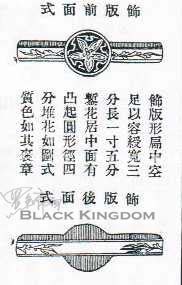 飾版前面式
飾版形扁中空
足以容綬寬三
分長一寸五分
鏨花居中面有
凸起圓形徑四
分堆花如圖式
質色如其褒章
BLACK KINGDOM
飾版後面式